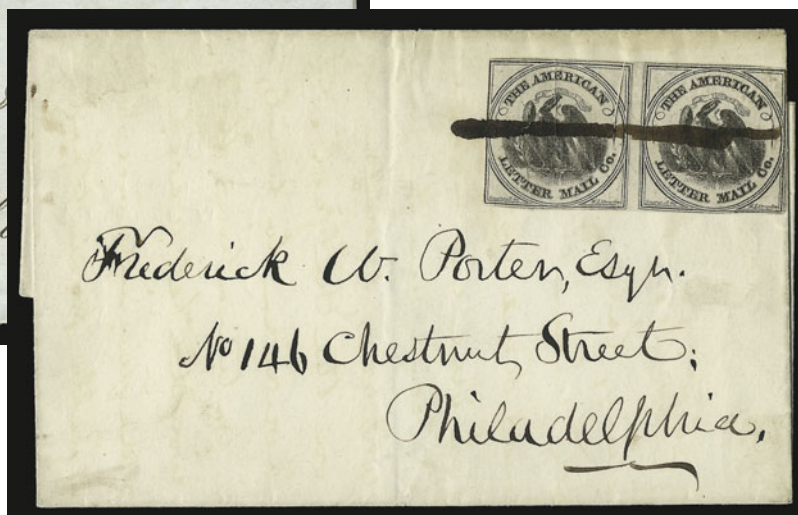 THE AMERICAN
LETTER MAIL Co.
THE AMERICAN
LETTER MAIL Co.
Frederick W. Porter, Esqr.
No 146 Chestnut Street;
Philadelphia.